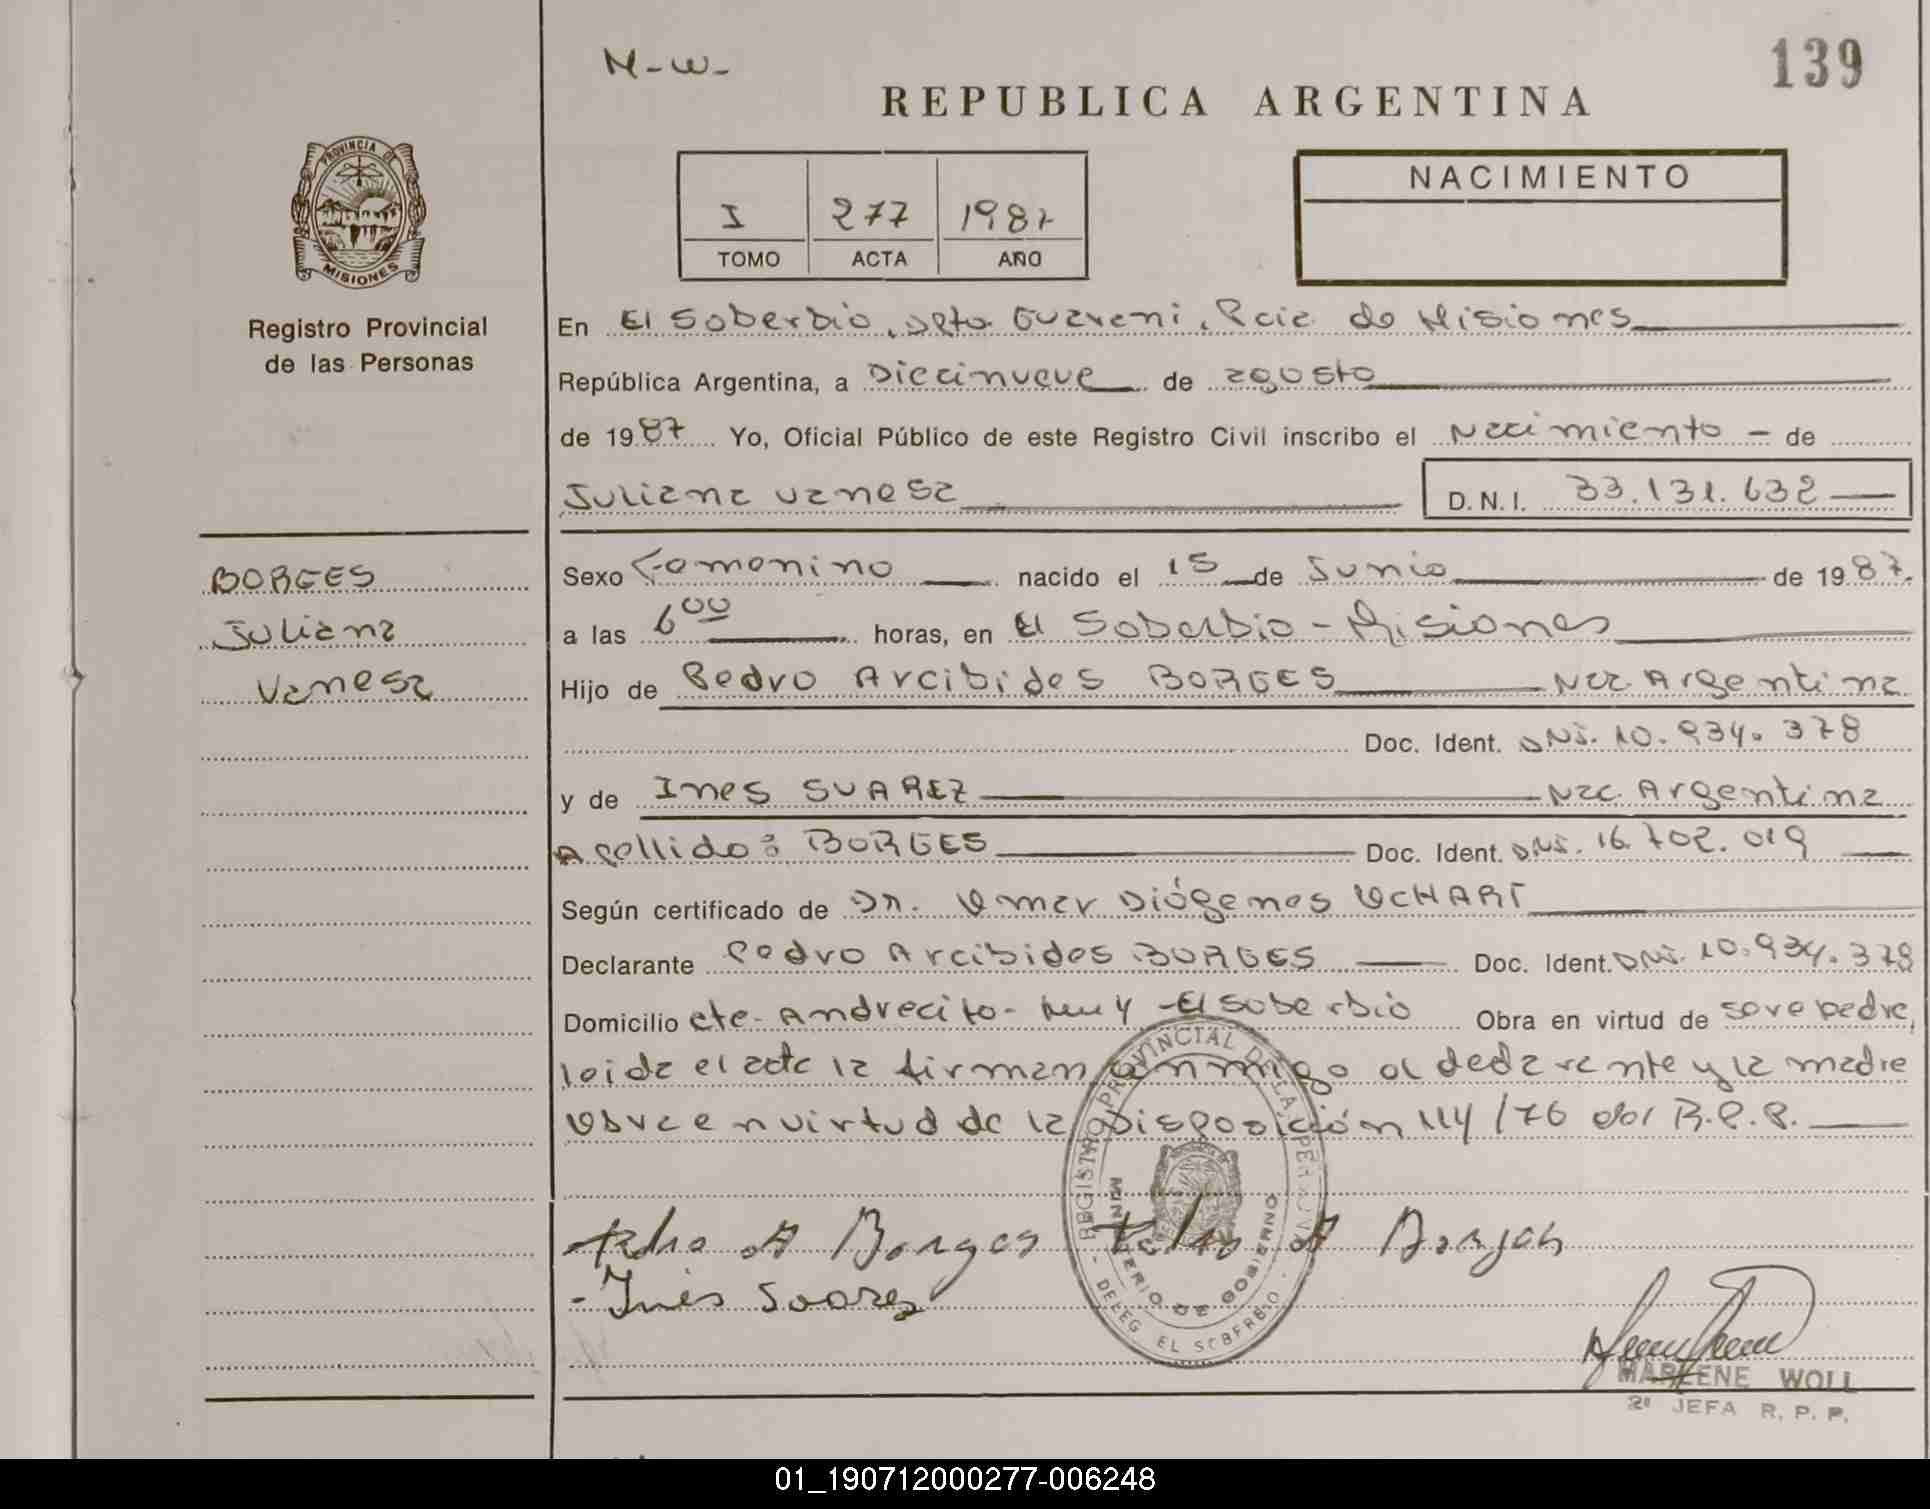 M-W-
139
REPUBLICA ARGENTINA
PROVINCIA DE
MISIONES
Registro Provincial
de las Personas
I 277 1987
TOMO ACTA AÑO
NACIMIENTO
En El Soberbio, Dpto Guarani, Pcia de Misiones
República Argentina, a Diecinueve de agosto
de 1987 Yo, Oficial Público de este Registro Civil inscribo el Nacimiento - de
Juliana Vanesa D.N.I. 33.131.632
BORGES
Juliana
Vanesa
Sexo Femenino nacido el 15 de Junio de 1987.
a las 6 00 horas, en El Soberbio - Misiones
Hijo de Pedro Arcibides BORGES Nac. Argentina
Doc. Ident. DNI. 10.934.378
y de Ines SUAREZ Nac. Argentina
Apellido: BORGES Doc. Ident. DNI. 16.702.019
Según certificado de Dr. Omar Diógenes OCHART
Declarante Pedro Arcibides BORGES Doc. Ident. DNI. 10.934.378
Domicilio Cte. Andrecito - El Soberbio Obra en virtud de ser padre,
leida el acta la firman conmigo el declarante y la madre
Obra en virtud de la Disposición 114/76 del R.P.P.
REGISTRO PROVINCIAL DE LAS PERSONAS
MINISTERIO DE GOBIERNO
- DELEG EL SOBERBIO -
Pedro A Borges Pedro A Borges
- Inés Soarez
MARLENE WOLL
2ª JEFA R. P. P.
01_190712000277-006248